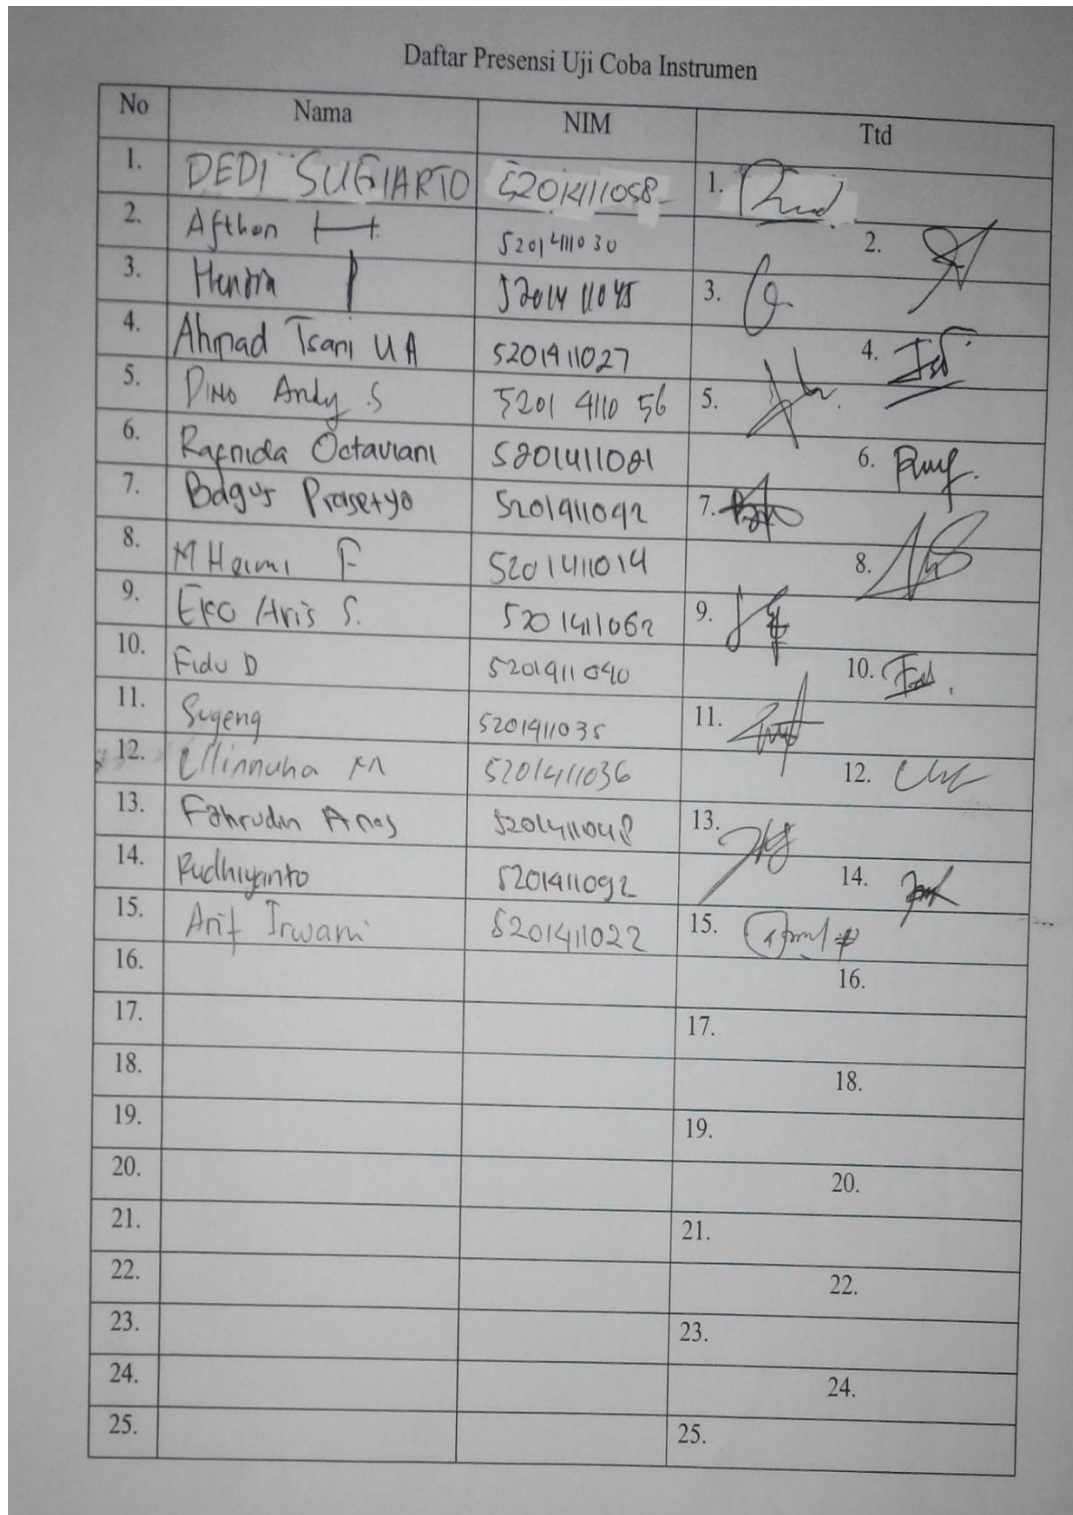 Daftar Presensi Uji Coba Instrumen
No Nama NIM Ttd
1. DEDI SUGIARTO 5201411058 1.
2. Afthon H. 5201411030 2.
3. Hendra P 5201411045 3.
4. Ahmad Tsani UA 5201411027 4.
5. DINO Andy S 5201411056 5.
6. Rafnida Octaviani 5201411081 6.
7. Bagus Prasetyo 5201411042 7.
8. M Helmi F 5201411014 8.
9. EKO Aris S. 5201411062 9.
10. D 5201411040 10.
11. Sugeng 5201411035 11.
12. Ulinnuha M 5201411036 12.
13. Fahrudin Anas 5201411048 13.
14. Rudhiyanto 5201411092 14.
15. Arif Irwani 5201411022 15.
16. 16.
17. 17.
18. 18.
19. 19.
20. 20.
21. 21.
22. 22.
23. 23.
24. 24.
25. 25.